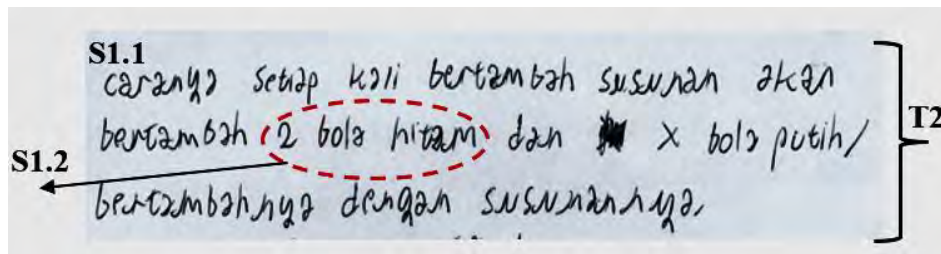 S1.1
caranya setiap kali bertambah susunan akan
bertambah 2 bola hitam dan X bola putih/
S1.2
bertambahnya dengan susunannya,
T2